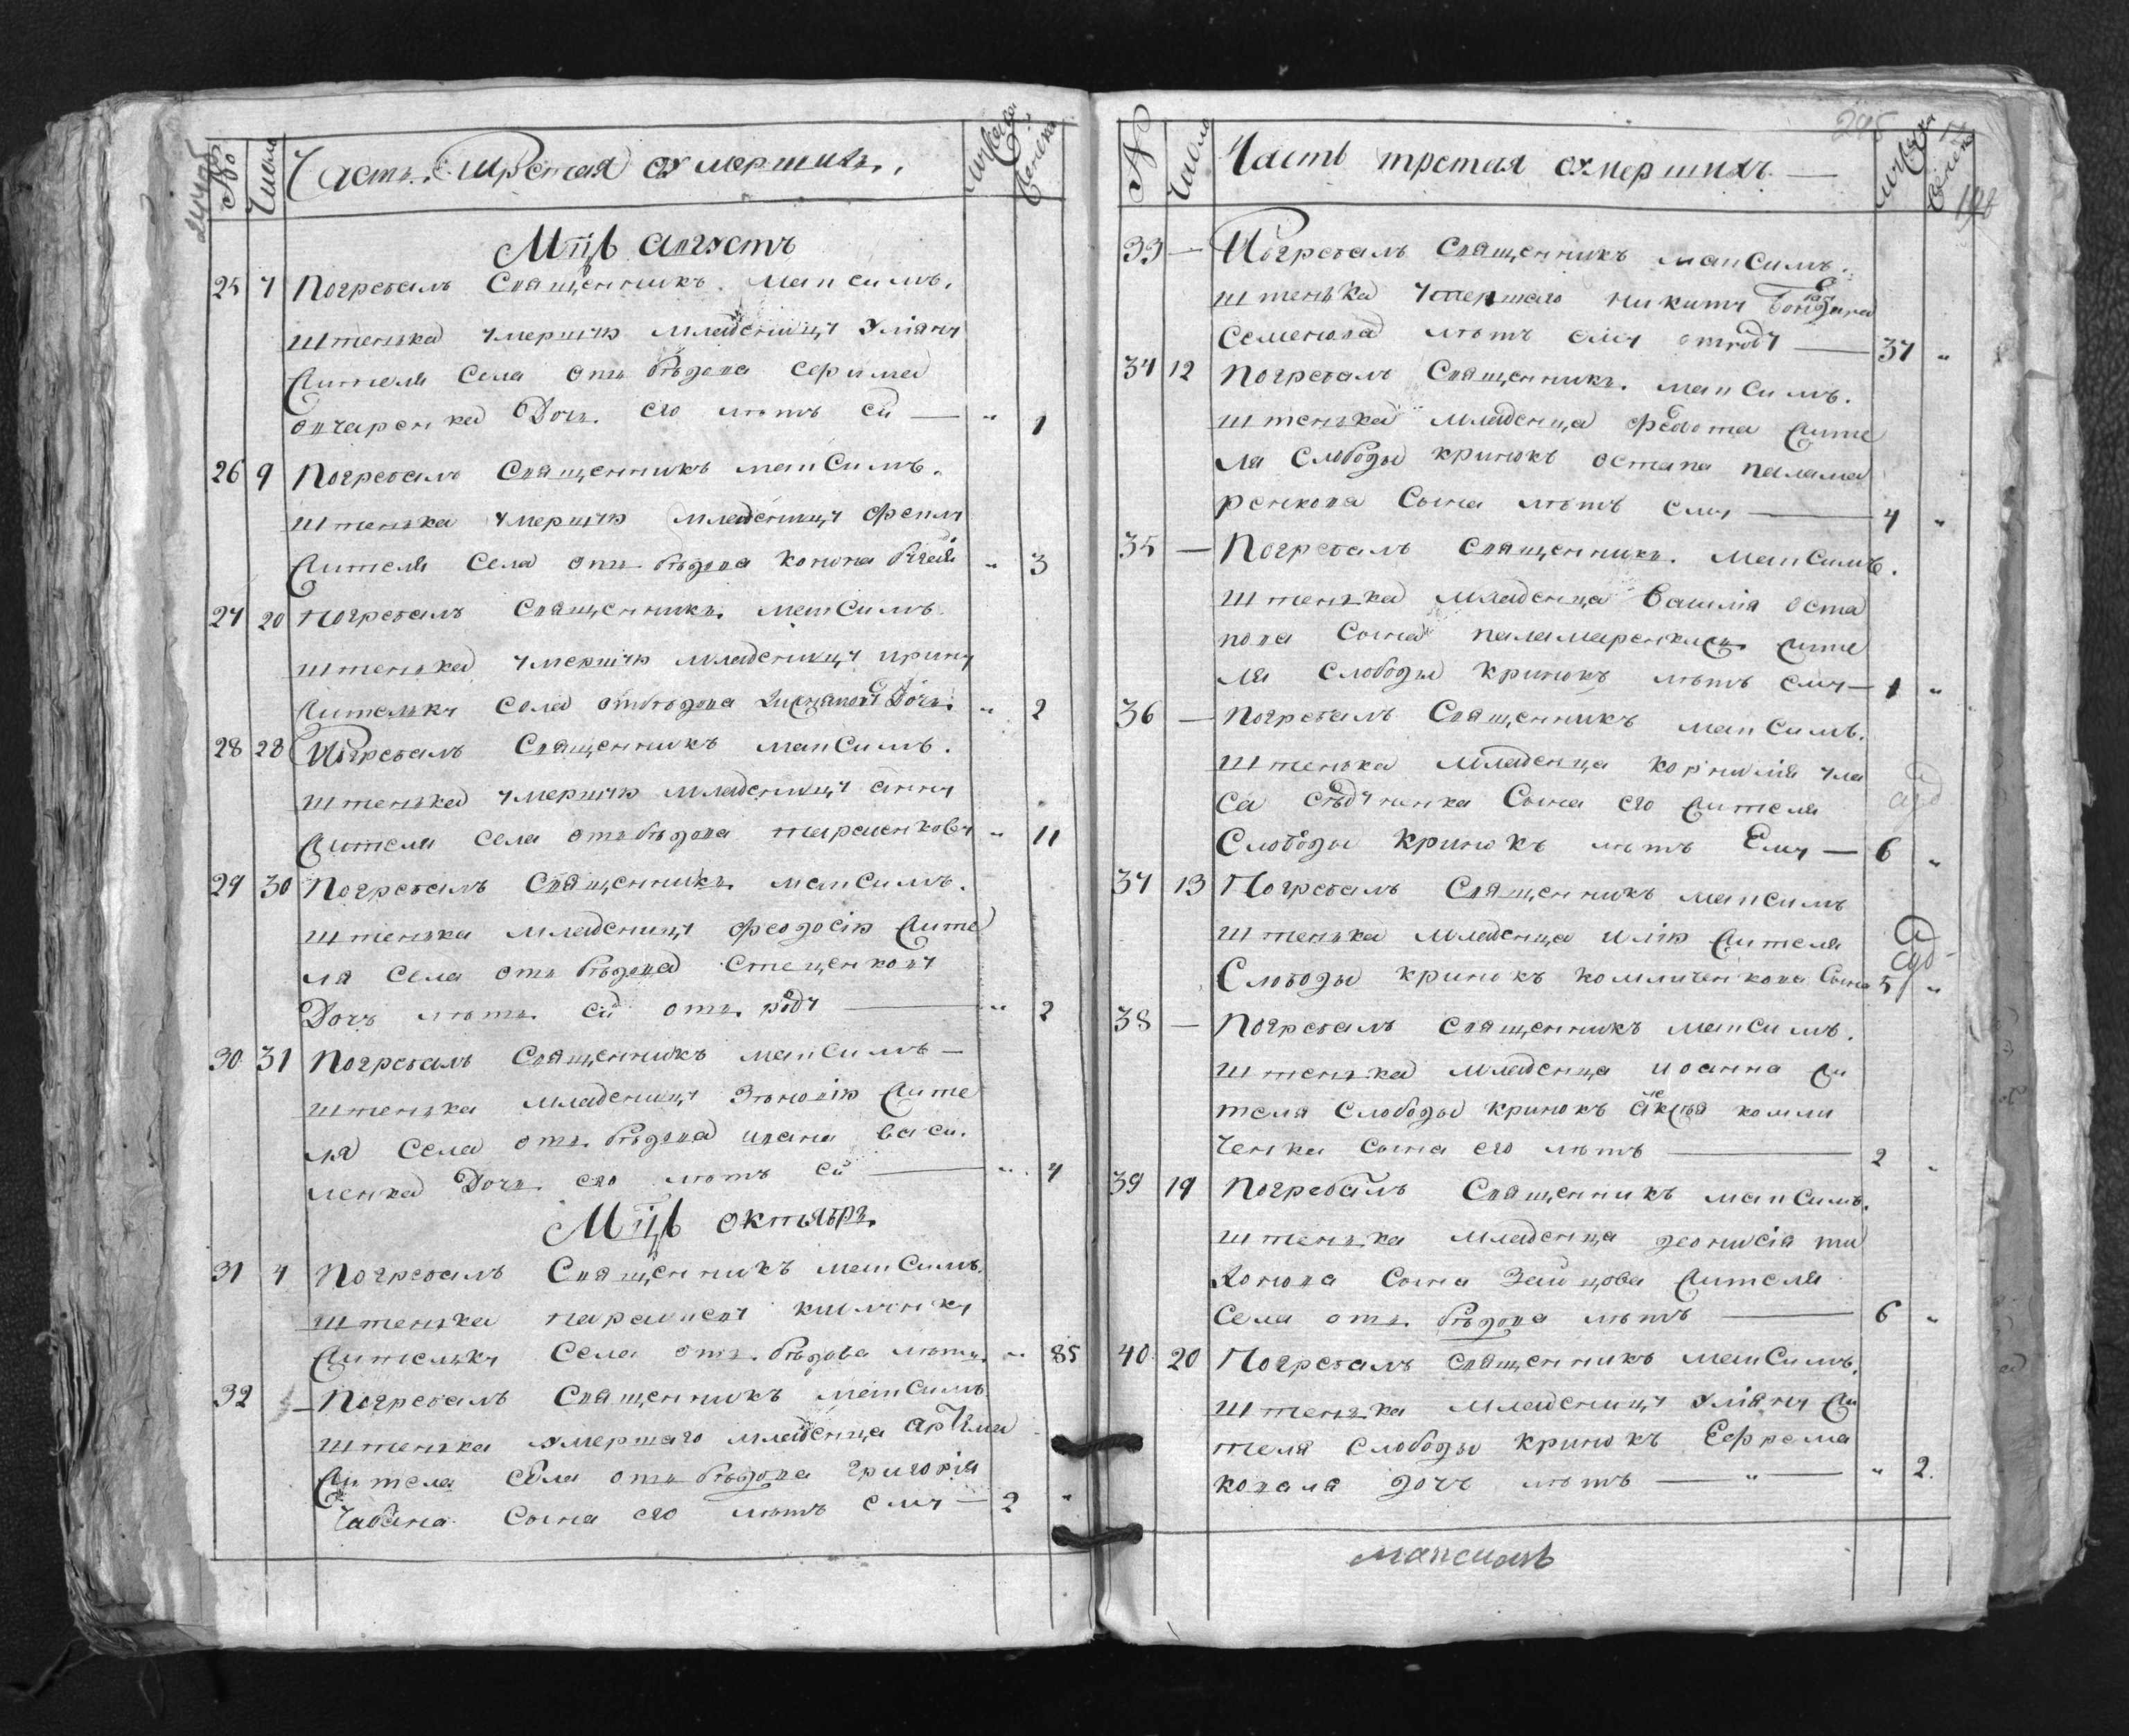 № Число Часть Третая о умершихъ. Мужеска Женска
Мцъ Августъ
25 7 Погребалъ Священникъ Максимъ
Штенька умершую младеницу Уліяну
жителя села Отъбѣдова Ефима
Овчаренка дочь его лѣтъ ей — „ 1
26 9 Погребалъ Священникъ Максимъ
Штенька умершую младеницу Феклу
жителя села Отъбѣдова Конона „ 3
27 20 Погребалъ Священникъ Максимъ
Штенька умершую младеницу Ирину
жительки села Отбѣдова дочь „ 2
28 28 Погребалъ Священникъ Максимъ
Штенька умершую младеницу Анну
жителя села Отъбѣдова „ 11
29 30 Погребалъ Священникъ Максимъ
Штенька младеницу Феодосію жите
ля села Отъбѣдова Стеценкову
дочь лѣтъ ей отъ роду — „ 2
30 31 Погребалъ Священникъ Максимъ —
Штенька младеницу Зѣновію жите
ля села Отъбѣдова Ивана Васи
ленка дочь его лѣтъ ей — „ 4
Мцъ Октябрь
31 4 Погребалъ Священникъ Максимъ
Штенька
жительку села Отъбѣдова лѣтъ „ 85
32 — Погребалъ Священникъ Максимъ
Штенька умершаго младенца Артема
жителя села Отъбѣдова Григорія
Чабана сына его лѣтъ ему — 2 „
№ Число Часть третая о умершихъ — Мужеска Женска
33 — Погребалъ Священникъ Максимъ
Штенька умершаго Никиту
Семенова лѣтъ ему отроду — 37 „
34 12 Погребалъ Священникъ Максимъ
Штенька младенца Федота жите
ля Слободы Криюкъ Остапа Палама
ренкова сына лѣтъ ему — 4 „
35 — Погребалъ Священникъ Максимъ
Штенька младенца Василія Оста
пова сына Паламаренка жите
ля Слободы Криюкъ лѣтъ ему — 1 „
36 — Погребалъ Священникъ Максимъ
Штенька младенца Корнилія Ула
са сына его жителя
Слободы Криюкъ лѣтъ Ему — 6 „
37 13 Погребалъ Священникъ Максимъ
Штенька младенца Илію жителя
Слободы Криюкъ Комличенкова сына 5 „
38 — Погребалъ Священникъ Максимъ
Штенька младенца Иоанна жи
теля Слободы Криюкъ Комли
ченка сына его лѣтъ — 2 „
39 19 Погребалъ Священникъ Максимъ
Штенька младенца Деонисія Ти
хонова сына Зайцова жителя
села Отъбѣдова лѣтъ — 6 „
40 20 Погребалъ Священникъ Максимъ
Штенька младеницу Уліяну жи
теля Слободы Криюкъ Ефрема
Коваля дочь лѣтъ — „ — „ 2
Максимъ